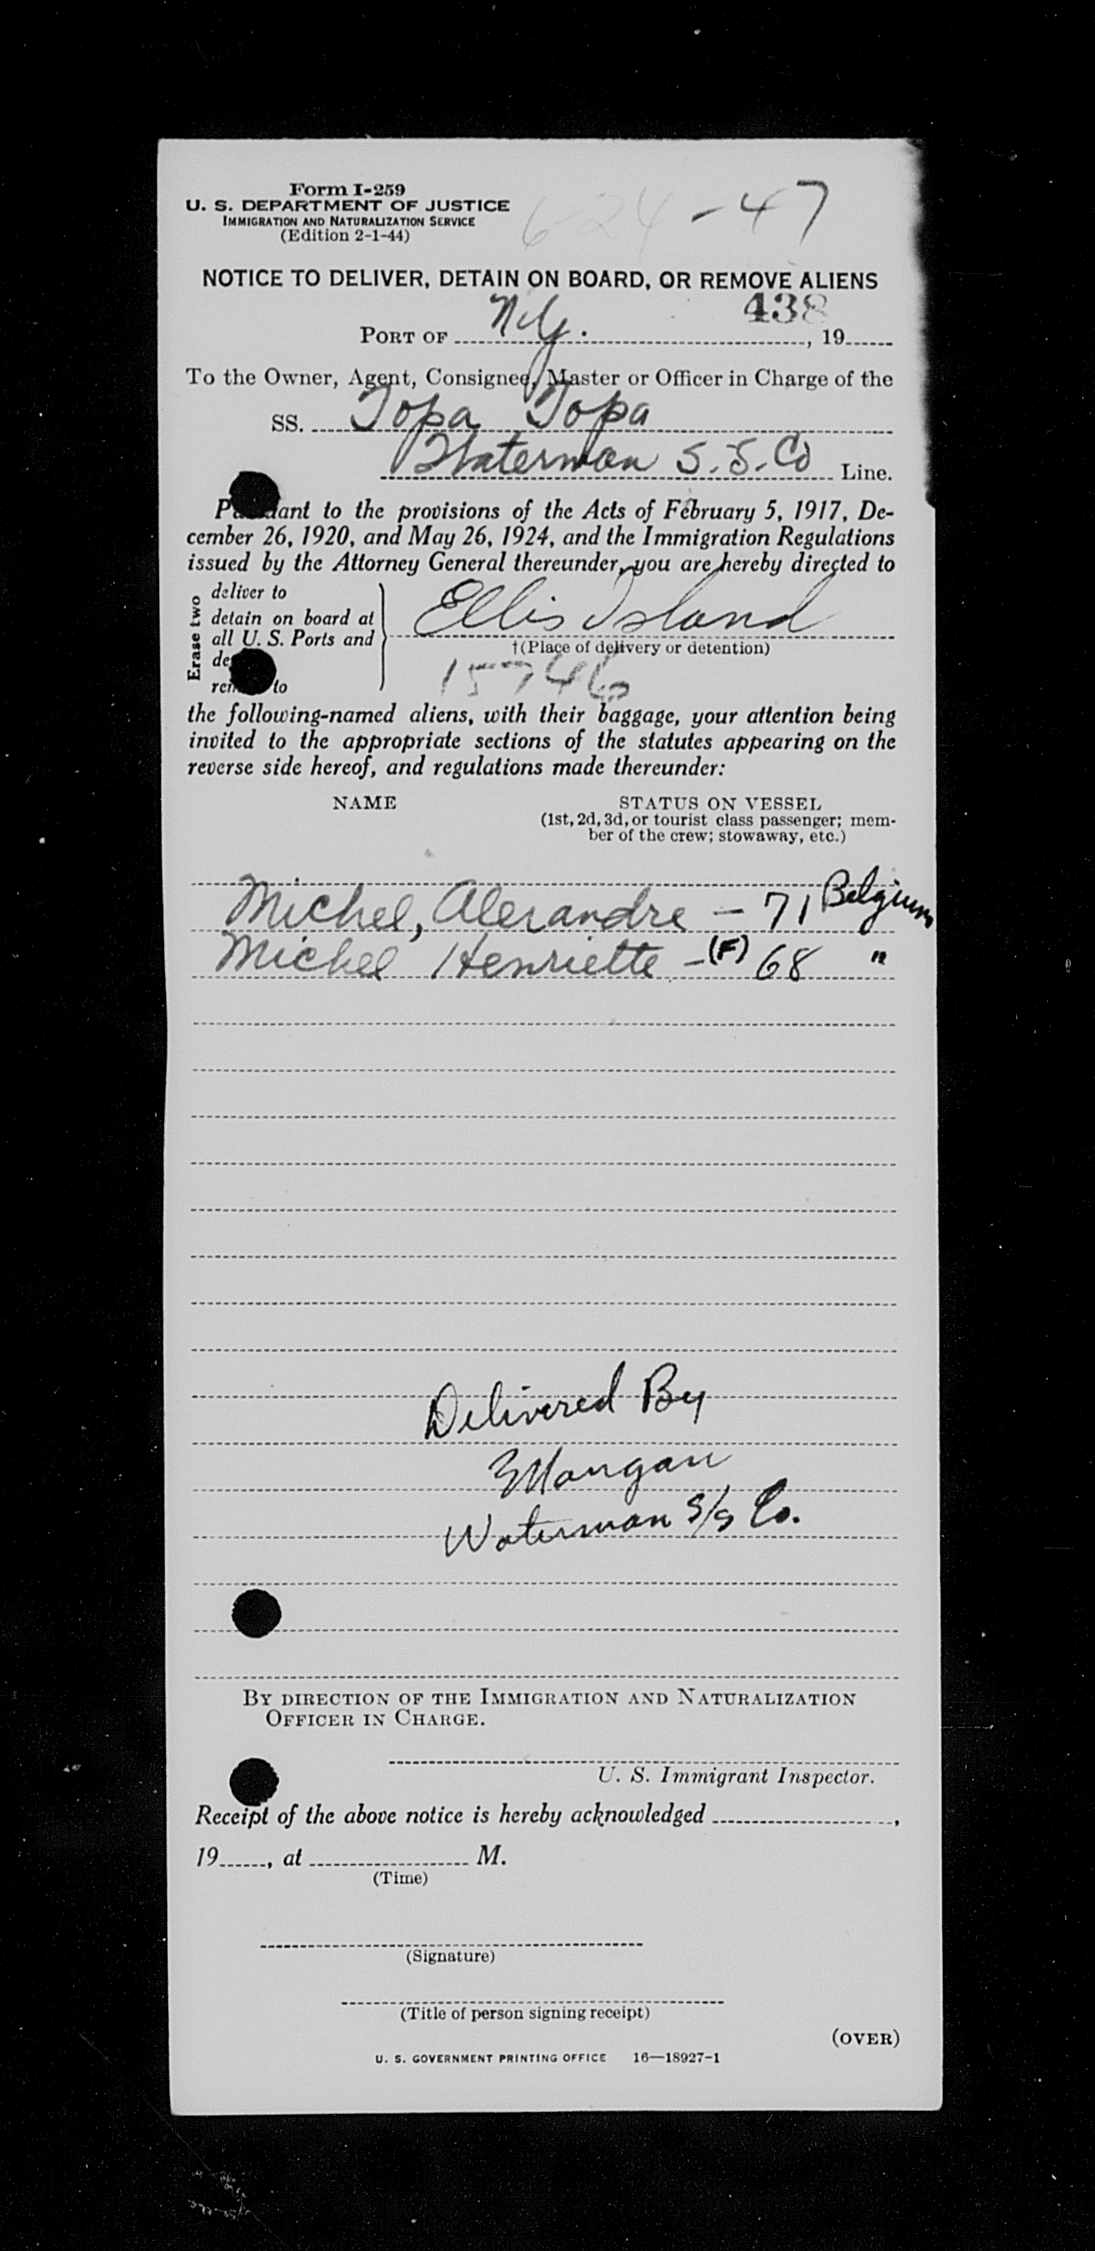 Form I-259
U. S. DEPARTMENT OF JUSTICE
IMMIGRATION AND NATURALIZATION SERVICE
(Edition 2-1-44)
624-47
NOTICE TO DELIVER, DETAIN ON BOARD, OR REMOVE ALIENS
438
PORT OF N.Y. , 19
To the Owner, Agent, Consignee, Master or Officer in Charge of the
SS. Topa Topa
Waterman S.S. Co Line.
to the provisions of the Acts of February 5, 1917, De-
cember 26, 1920, and May 26, 1924, and the Immigration Regulations
issued by the Attorney General thereunder, you are hereby directed to
Erase two
deliver to
detain on board at
all U. S. Ports and
to
Ellis Island
†(Place of delivery or detention)
15746
the following-named aliens, with their baggage, your attention being
invited to the appropriate sections of the statutes appearing on the
reverse side hereof, and regulations made thereunder:
NAME STATUS ON VESSEL
(1st, 2d, 3d, or tourist class passenger; mem-
ber of the crew; stowaway, etc.)
Michel, Alexandre - 71 Belgium
Michel Henriette - (F) 68 "
Delivered By
Mangan
Waterman S/S Co.
BY DIRECTION OF THE IMMIGRATION AND NATURALIZATION
OFFICER IN CHARGE.
U. S. Immigrant Inspector.
Receipt of the above notice is hereby acknowledged ,
19 , at M.
(Time)
(Signature)
(Title of person signing receipt)
(OVER)
U. S. GOVERNMENT PRINTING OFFICE 16—18927-1